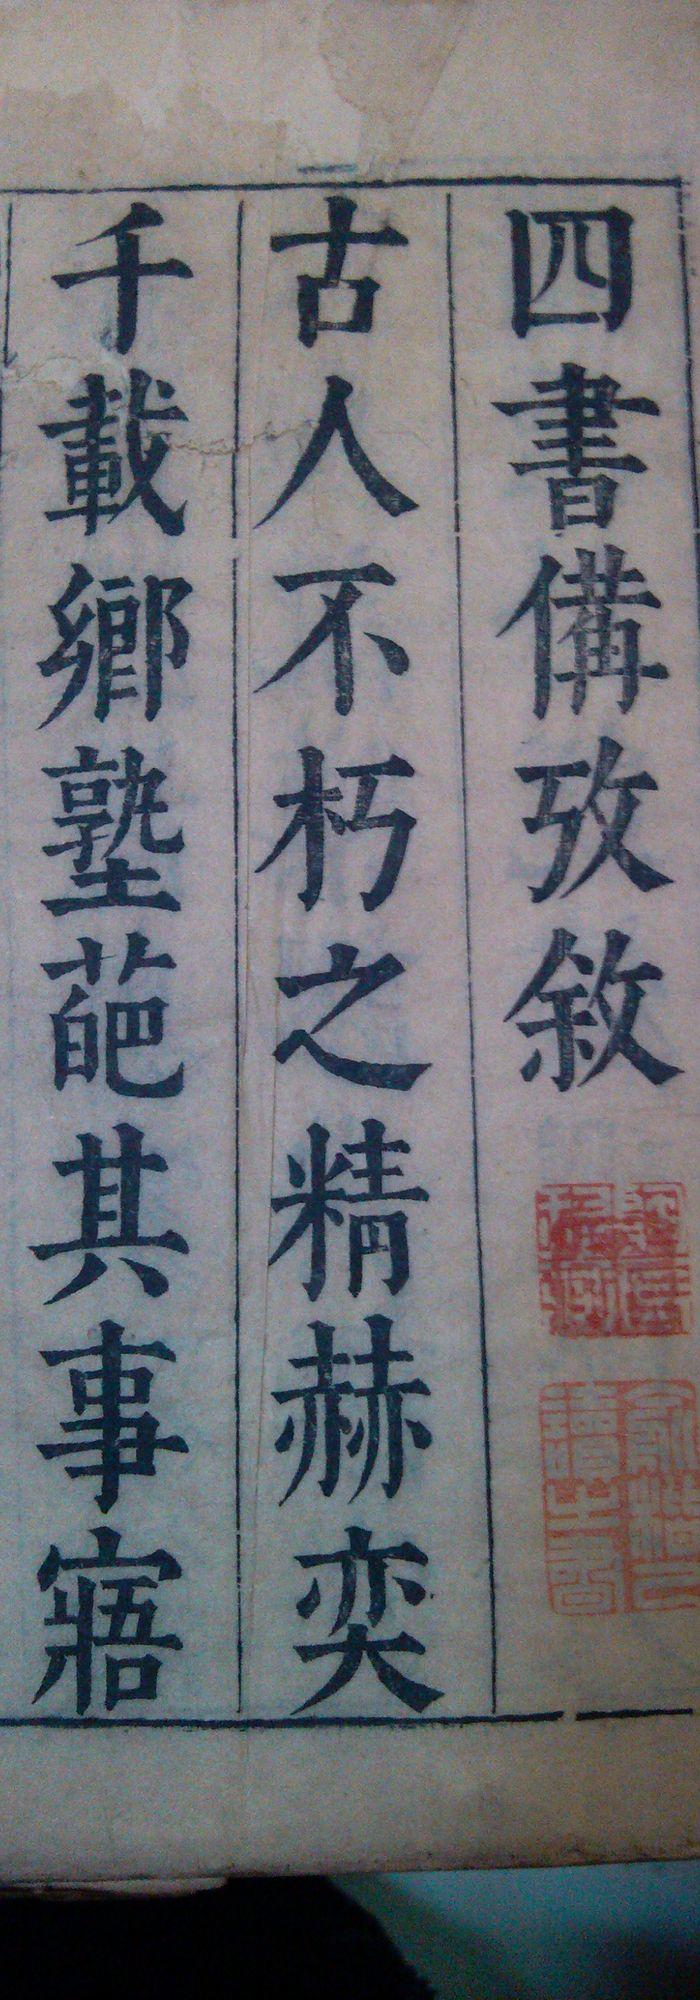 四書備攷敘
古人不朽之精赫奕
千載鄉塾葩其事寤